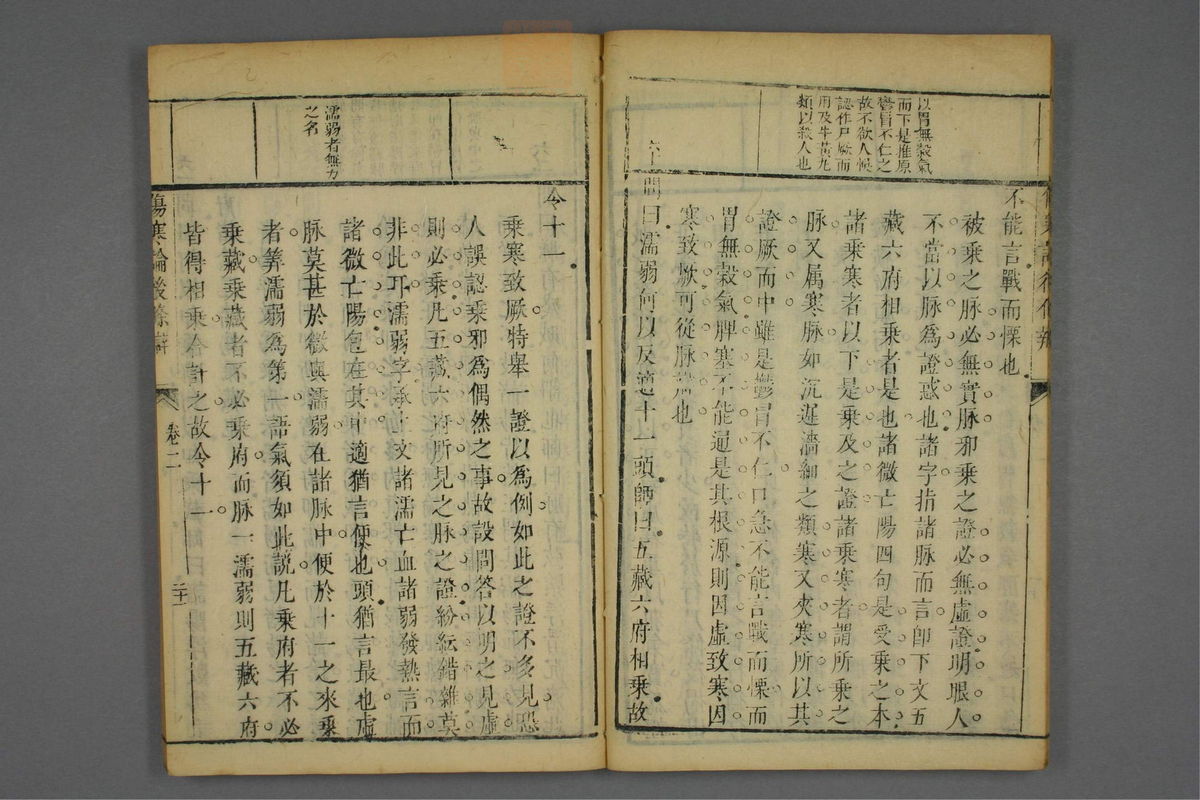 以胃無穀氣
而下是推原
鬱冒不仁之
故不欲人悞
認作尸厥而
用及牛黃丸
類以殺人也
不能言戰而慄也
被乘之脉必無實脉邪乘之證必無虛證明眼人
不當以脉為證惑也諸字指諸脉而言卽下文五
藏六府相乘者是也諸微亡陽四句是受乘之本
諸乘寒者以下是乘及之證諸乘寒者謂所乘之
脉又属寒脉如沉遲濇細之類寒又夾寒所以其
證厥而中雖是鬱冒不仁口急不能言戰而慄而
胃無穀氣脾塞不能通是其根源則因虛致寒因
寒致厥可從脉
也
六十
問曰濡弱何以反適十一頭師曰五藏六府相乘故
濡弱者無力
之名
令十一
乘寒致厥特舉一證以為例如此之證不多見恐
人誤認乘邪為偶然之事故設問答以明之見虛
則必乘凡五藏六府所見之脉之證紛紜錯雜莫
非此耳濡弱字承上文諸濡亡血諸弱發熱言而
諸微亡陽包在其中適猶言便也頭猶言最也虛
脉莫甚於微與濡弱在諸脉中便於十一之來乘
者筭濡弱為第一語氣須如此說凡乘府者不必
乘藏乘藏者不必乘府而脉一濡弱則五藏六府
皆得相乘合計之故令十一
傷寒論後條辯
卷二
二十一